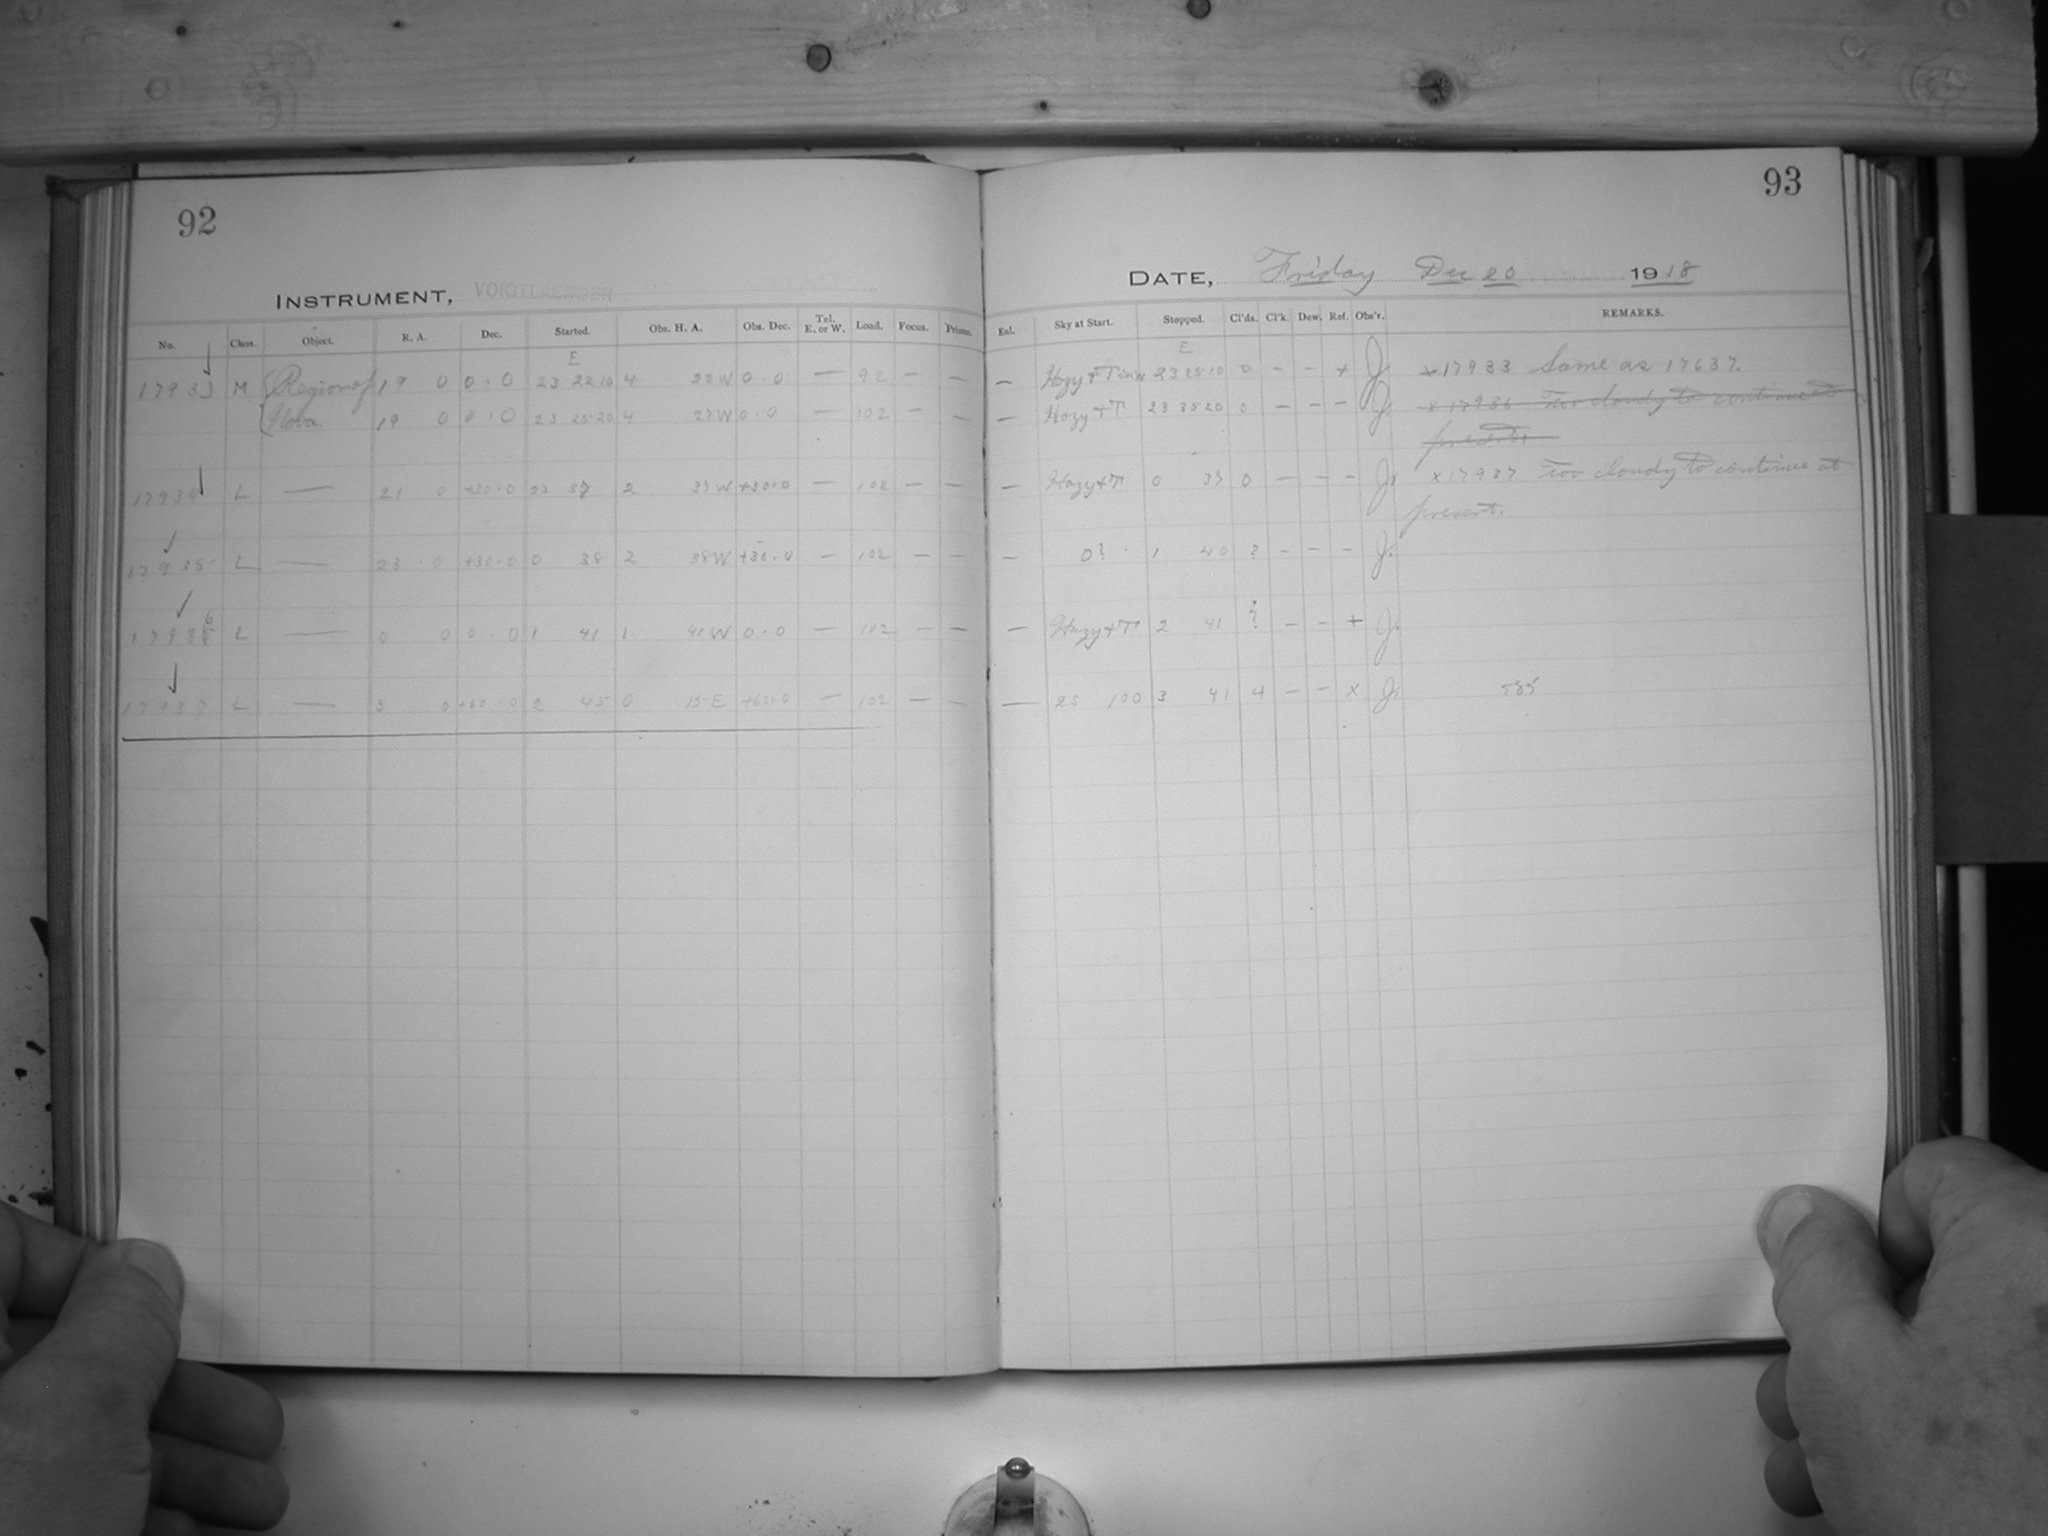 92
INSTRUMENT, VOIGTLAENDER
No. Class. Object. R. A. Dec. Started. Obs. H. A. Obs. Dec. Tel. E. or W. Load. Focus. Prisms.
E
17933 M Region of 19 0 0.0 23 22 10 4 22 W 0.0 — 92 — —
Nova 19 0 0.0 23 25 20 4 27 W 0.0 — 102 — —
17934 L — 21 0 +30.0 23 37 2 37 W +30.0 — 102 — —
17935 L — 23 0 +30.0 0 38 2 38 W +30.0 — 102 — —
17936 L — 0 0 0.0 1 41 1 41 W 0.0 — 102 — —
17937 L — 3 0 +60.0 2 45 0 15 E +60.0 — 102 — —
93
DATE, Friday Dec 20 1918
Enl. Sky at Start. Stopped. Cl'ds. Cl'k. Dew. Ref. Obs'r. REMARKS.
E
— Hazy + 23 25 10 0 — — + J. x 17933 Same as 17637.
— Hazy + T 23 35 20 0 — — — J. x 17936 Too cloudy to continue at
present.
— Hazy + T 0 37 0 — — — J. x 17937 Too cloudy to continue at
present.
— 0? 1 40 ? — — — J.
— Hazy + T 2 41 ? — — + J.
— 25 100 3 41 4 — — x J. 585